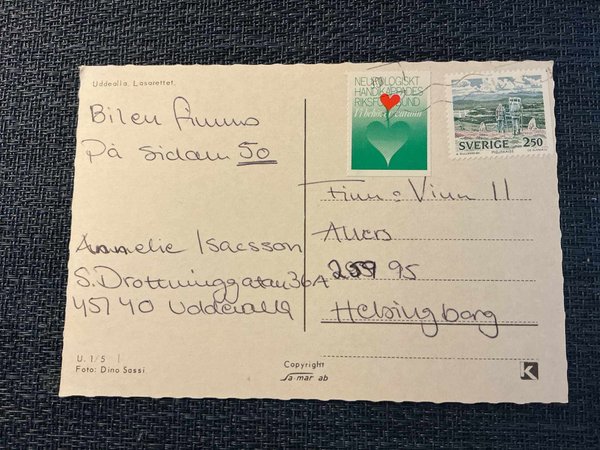 Uddevalla. Lasarettet.
NEUROLOGISKT
HANDIKAPPADES
RIKSFÖRBUND
Vi behöver
SVERIGE 250
Bilen finns
På Sidan 50
Finn & Vinn 11
Allers
259 95
Helsingborg
Annelie Isacsson
S. Drottninggatan 36A
451 40 Uddevalla
U. 1/5
Foto: Dino Sassi
Copyright
Sa-mar ab
K